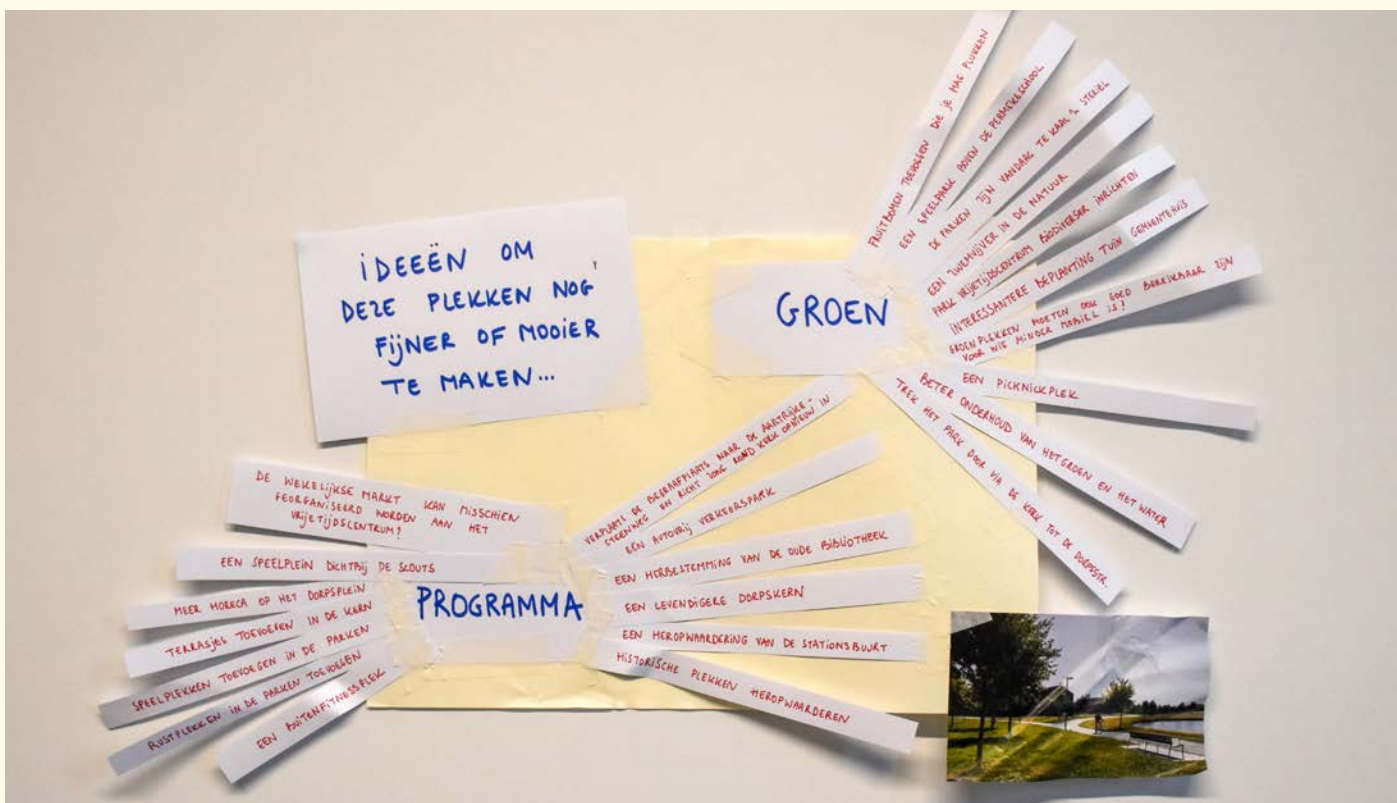 iDEEËN OM
DEZE PLEKKEN NOG
FijNER OF MOOiER
TE MAKEN...
GROEN
FRUITBOMEN TOEVOEGEN DIE JE MAG PLUKKEN
EEN SPEELPARK BOVEN DE PERMEKESCHOOL
DE PARKEN ZIJN VANDAAG TE KAAL & STERIEL
EEN ZWEMVIJVER IN DE NATUUR
PARK VRIJETIJDSCENTRUM BIODIVERSER INRICHTEN
INTERESSANTERE BEPLANTING TUIN GEMEENTEHUIS
GROENPLEKKEN MOETEN OOK GOED BEREIKBAAR ZIJN
VOOR WIE MINDER MOBIEL IS?
EEN PICKNICKPLEK
BETER ONDERHOUD VAN HET GROEN EN HET WATER
TREK HET PARK DOOR VIA DE KERK TOT DE DORPSSTR.
PROGRAMMA
DE WEKELIJKSE MARKT KAN MISSCHIEN
GEORGANISEERD WORDEN AAN HET
VRIJETIJDSCENTRUM?
EEN SPEELPLEIN DICHTBIJ DE SCOUTS
MEER HORECA OP HET DORPSPLEIN
TERRASJES TOEVOEGEN IN DE KERN
SPEELPLEKKEN TOEVOEGEN IN DE PARKEN
RUSTPLEKKEN IN DE PARKEN TOEVOEGEN
EEN BUITENFITNESSPLEK
VERPLAATS DE BEGRAAFPLAATS NAAR DE AARTRIJKE-
STEENWEG EN RICHT ZONE ROND KERK OPNIEUW IN
EEN AUTOVRIJ VERKEERSPARK
EEN HERBESTEMMING VAN DE OUDE BIBLIOTHEEK
EEN LEVENDIGERE DORPSKERN
EEN HEROPWAARDERING VAN DE STATIONSBUURT
HISTORISCHE PLEKKEN HEROPWAARDEREN